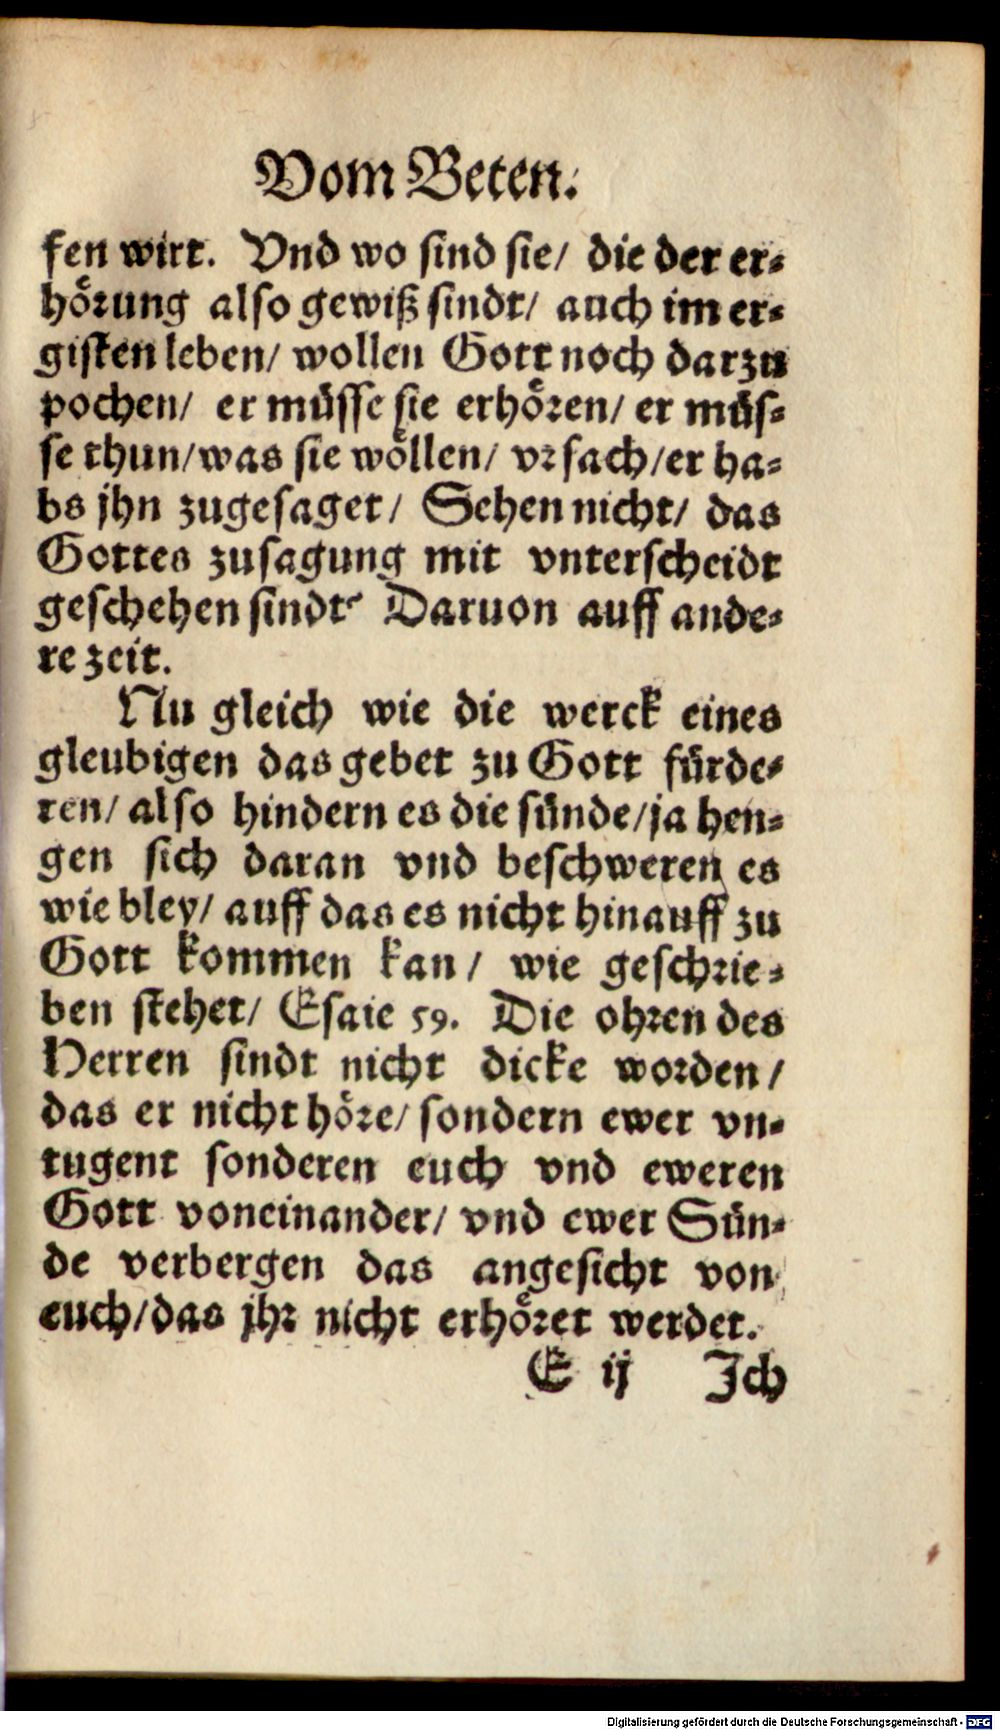 Vom Beten.
fen wirt. Vnd wo sind sie/ die der er-
hörung also gewiß sindt/ auch im er-
gisten leben/ wollen Gott noch darzu
pochen/ er müsse sie erhören/ er müs-
se thun/was sie wöllen/ vrsach/er ha-
bs jhn zugesaget/ Sehen nicht/ das
Gottes zusagung mit vnterscheidt
geschehen sindt? Daruon auff ande-
re zeit.
Nu gleich wie die werck eines
gleubigen das gebet zu Gott fürde-
ren/ also hindern es die sünde/ja hen-
gen sich daran vnd beschweren es
wie bley/ auff das es nicht hinauff zu
Gott kommen kan/ wie geschrie-
ben stehet/ Esaie 59. Die ohren des
Herren sindt nicht dicke worden/
das er nicht höre/ sondern ewer vn-
tugent sonderen euch vnd eweren
Gott voneinander/ vnd ewer Sün-
de verbergen das angesicht von
euch/das jhr nicht erhöret werdet.
E ij Ich
Digitalisierung gefördert durch die Deutsche Forschungsgemeinschaft - DFG